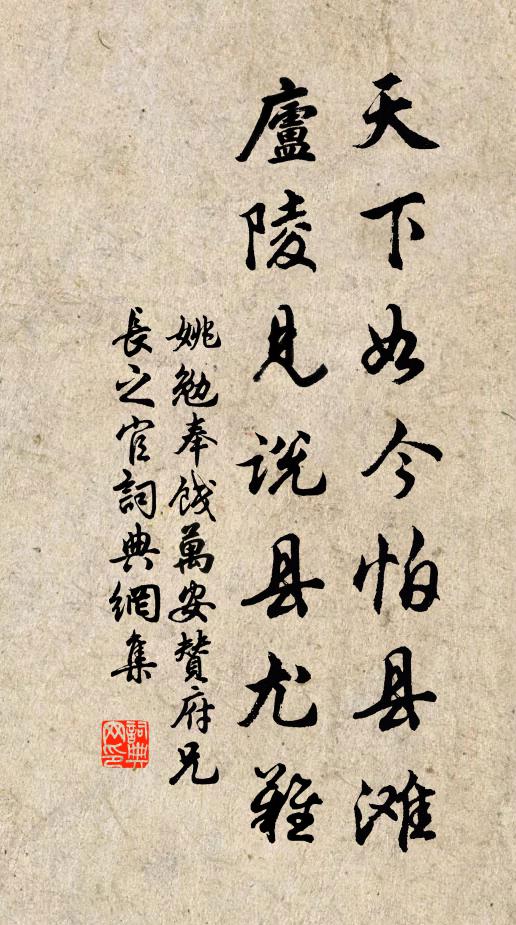 天下如今怕县滩
廬陵見说县尤難
姚勉奉餞萬安贊府兄
長之官詞典網集
詞典